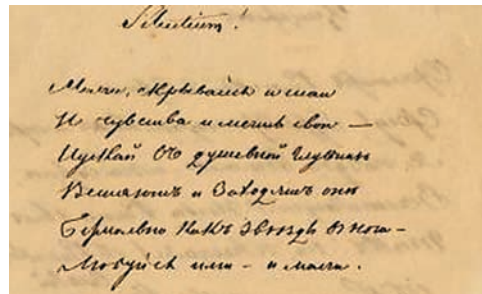 Silentium!
Молчи, скрывайся и таи
И чувства и мечты свои —
Пускай въ душевной глубинѣ
Встаютъ и заходятъ онѣ
Безмолвно какъ звѣзды въ ночи —
Любуйся ими — и молчи.